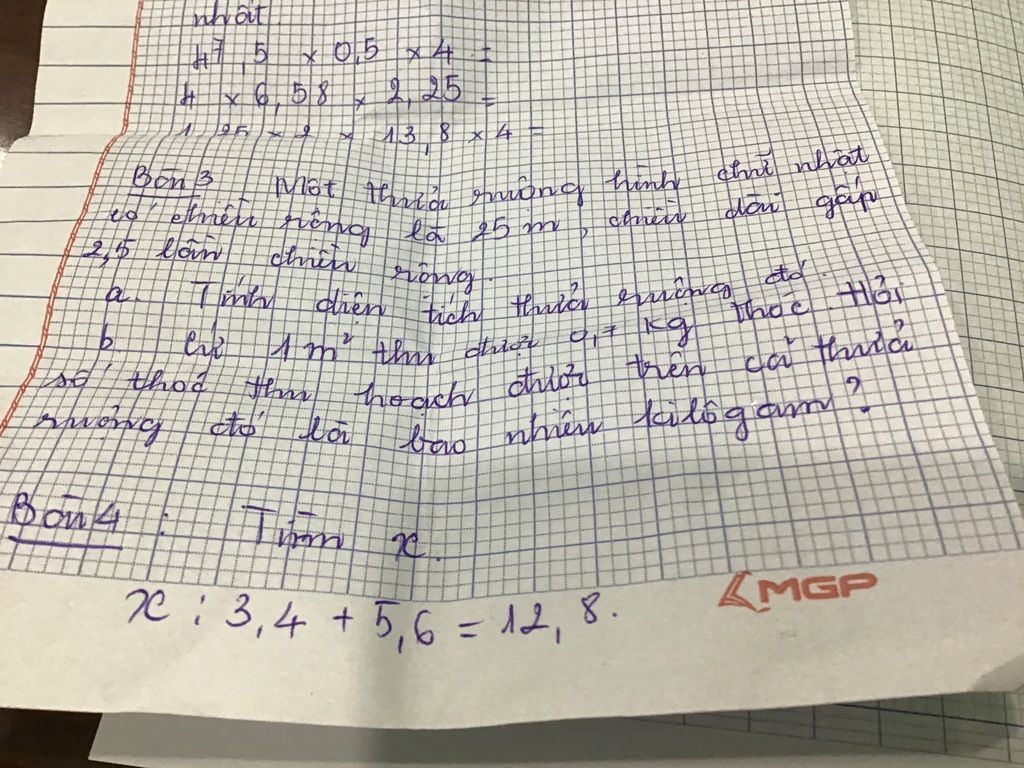 nhất
47,5 x 0,5 x 4 =
4 x 6,58 x 2,25 =
1,25 x 2 x 13,8 x 4 =
Bài 3 Một thửa ruộng hình chữ nhật
có chiều rộng là 25 m, chiều dài gấp
2,5 lần chiều rộng.
a. Tính diện tích thửa ruộng đó.
b. Cứ 1 m² thu được 0,7 kg thóc. Hỏi
số thóc thu hoạch được trên cả thửa
ruộng đó là bao nhiêu kilôgam?
Bài 4 : Tìm x.
MGP
x : 3,4 + 5,6 = 12,8.